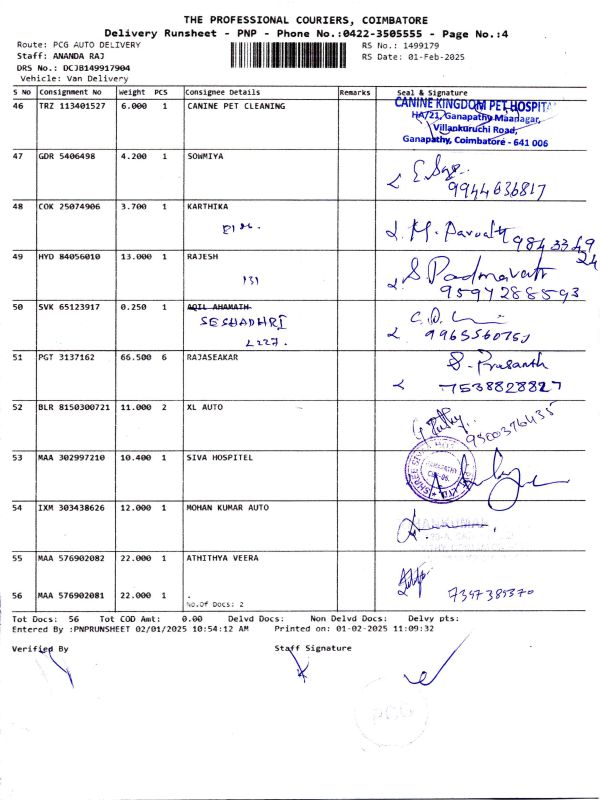 THE PROFESSIONAL COURIERS, COIMBATORE
Delivery Runsheet - PNP - Phone No.:0422-3505555 - Page No.:4
Route: PCG AUTO DELIVERY RS No.: 1499179
Staff: ANANDA RAJ RS Date: 01-Feb-2025
DRS No.: DCJB149917904
Vehicle: Van Delivery
S No Consignment No Weight PCS Consignee Details Remarks Seal & Signature
46 TRZ 113401527 6.000 1 CANINE PET CLEANING
CANINE KINGDOM PET HOSPITAL
Ganapathy Maanagar,
Villankuruchi Road,
Ganapathy, Coimbatore - 641 006
47 GDR 5406498 4.200 1 SOWMIYA
9944636817
48 COK 25074906 3.700 1 KARTHIKA
49 HYD 84056010 13.000 1 RAJESH
131
S. Padmavathi
9597288593
50 SVK 65123917 0.250 1 AQIL AHAMATH
SESHADHRI
L227.
51 PGT 3137162 66.500 6 RAJASEAKAR
S. Prasanth
7538828827
52 BLR 8150300721 11.000 2 XL AUTO
9500376435
53 MAA 302997210 10.400 1 SIVA HOSPITEL
54 IXM 303438626 12.000 1 MOHAN KUMAR AUTO
55 MAA 576902082 22.000 1 ATHITHYA VEERA
7397385370
56 MAA 576902081 22.000 1 .
No.Of Docs: 2
Tot Docs: 56 Tot COD Amt: 0.00 Delvd Docs: Non Delvd Docs: Delvy pts:
Entered By :PNPRUNSHEET 02/01/2025 10:54:12 AM Printed on: 01-02-2025 11:09:32
Verified By Staff Signature
PCG